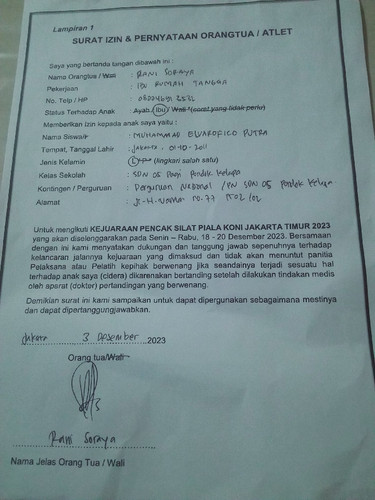 Lampiran 1
SURAT IZIN & PERNYATAAN ORANGTUA / ATLET
Saya yang bertanda tangan dibawah ini :
Nama Orangtua / Wali : RANI SORAYA
Pekerjaan : IBU RUMAH TANGGA
No. Telp / HP :
Status Terhadap Anak : Ayah / Ibu / Wali *(coret yang tidak perlu)
Memberikan izin kepada anak saya yaitu :
Nama Siswa/i : MUHAMMAD ELVAROFICO PUTRA
Tempat, Tanggal Lahir : Jakarta, 01-10-2011
Jenis Kelamin : L / P * (lingkari salah satu)
Kelas Sekolah : SDN 05 Pagi Pondok Kelapa
Kontingen / Perguruan : Perguruan Nasional / SDN 05 Pondok Kelapa
Alamat : Jl. H. no. 77 RT 02/02
Untuk mengikuti KEJUARAAN PENCAK SILAT PIALA KONI JAKARTA TIMUR 2023
yang akan diselenggarakan pada Senin – Rabu, 18 - 20 Desember 2023. Bersamaan
dengan ini kami menyatakan dukungan dan tanggung jawab sepenuhnya terhadap
kelancaran jalannya kejuaraan yang dimaksud dan tidak akan menuntut panitia
Pelaksana atau Pelatih kepihak berwenang jika seandainya terjadi sesuatu hal
terhadap anak saya (cidera) dikarenakan bertanding setelah dilakukan tindakan medis
oleh aparat (doktor) pertandingan yang berwenang.
Demikian surat ini kami sampaikan untuk dapat dipergunakan sebagaimana mestinya
dan dapat dipertanggungjawabkan.
Jakarta 3 Desember 2023
Orang tua/Wali
Rani Soraya
Nama Jelas Orang Tua / Wali